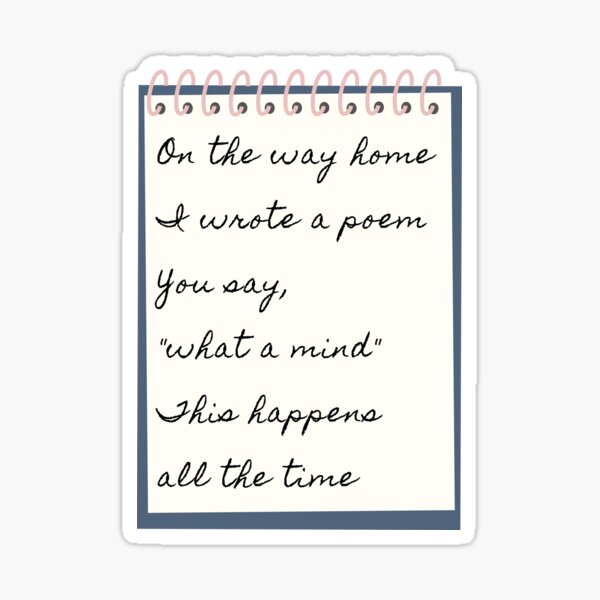 On the way home
I wrote a poem
You say,
"what a mind"
This happens
all the time